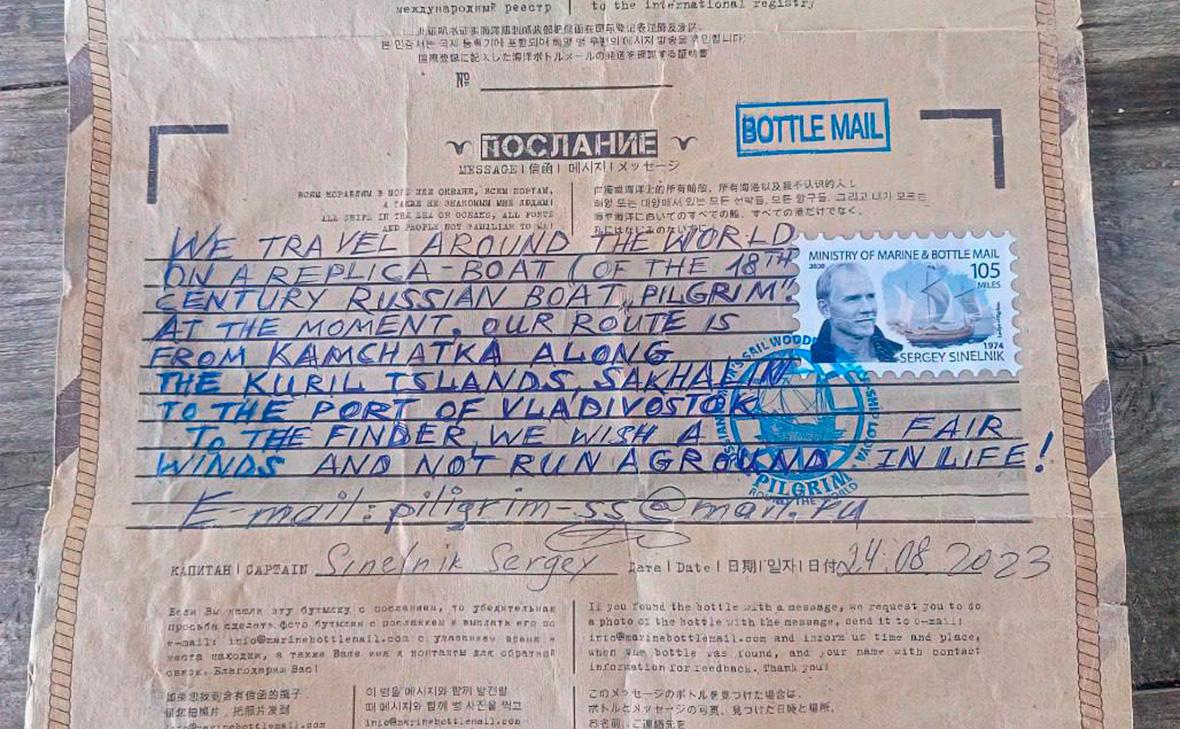 международный реестр
to the international registry
№
BOTTLE MAIL
ПОСЛАНИЕ
MESSAGE | 信函 | 메시지 | メッセージ
ВСЕМ КОРАБЛЯМ В МОРЕ ИЛИ ОКЕАНЕ, ВСЕМ ПОРТАМ,
А ТАКЖЕ НЕ ЗНАКОМЫМ МНЕ ЛЮДЯМ!
ALL SHIPS IN THE SEA OR OCEANS, ALL PORTS
AND PEOPLE NOT FAMILIAR TO ME!
WE TRAVEL AROUND THE WORLD
ON A REPLICA-BOAT (OF THE 18TH
CENTURY RUSSIAN BOAT „PILGRIM"
AT THE MOMENT, OUR ROUTE IS
FROM KAMCHATKA ALONG
THE KURIL ISLANDS, SAKHALIN
TO THE PORT OF VLADIVOSTOK
TO THE FINDER, WE WISH A FAIR
WINDS AND NOT RUN AGROUND IN LIFE!
E-mail: piligrim-ss@mail.ru
MINISTRY OF MARINE & BOTTLE MAIL
2020
105
MILES
1974
SERGEY SINELNIK
PILGRIM
ROUND THE WORLD
КАПИТАН | CAPTAIN Sinelnik Sergey Дата | Date | 日期 | 일자 | 日付 24.08 2023
Если Вы нашли эту бутылку с посланием, то убедительная
просьба сделать фото бутылки с посланием и выслать его по
e-mail: info@marinebottlemail.com с указанием время и
места находки, а также Ваше имя и контакты для обратной
связи. Благодарим Вас!
If you found the bottle with a message, we request you to do
a photo of the bottle with the message, send it to e-mail:
info@marinebottlemail.com and inform us time and place,
when the bottle was found, and your name with contact
information for feedback. Thank you!
이 병을 메시지와 함께 발견할
때 메시지와 함께 병 사진을 찍고
info@marinebottlemail.com
このメッセージのボトルを見つけた場合は、
ボトルとメッセージの写真、見つけた日時と場所、
お名前、ご連絡先を